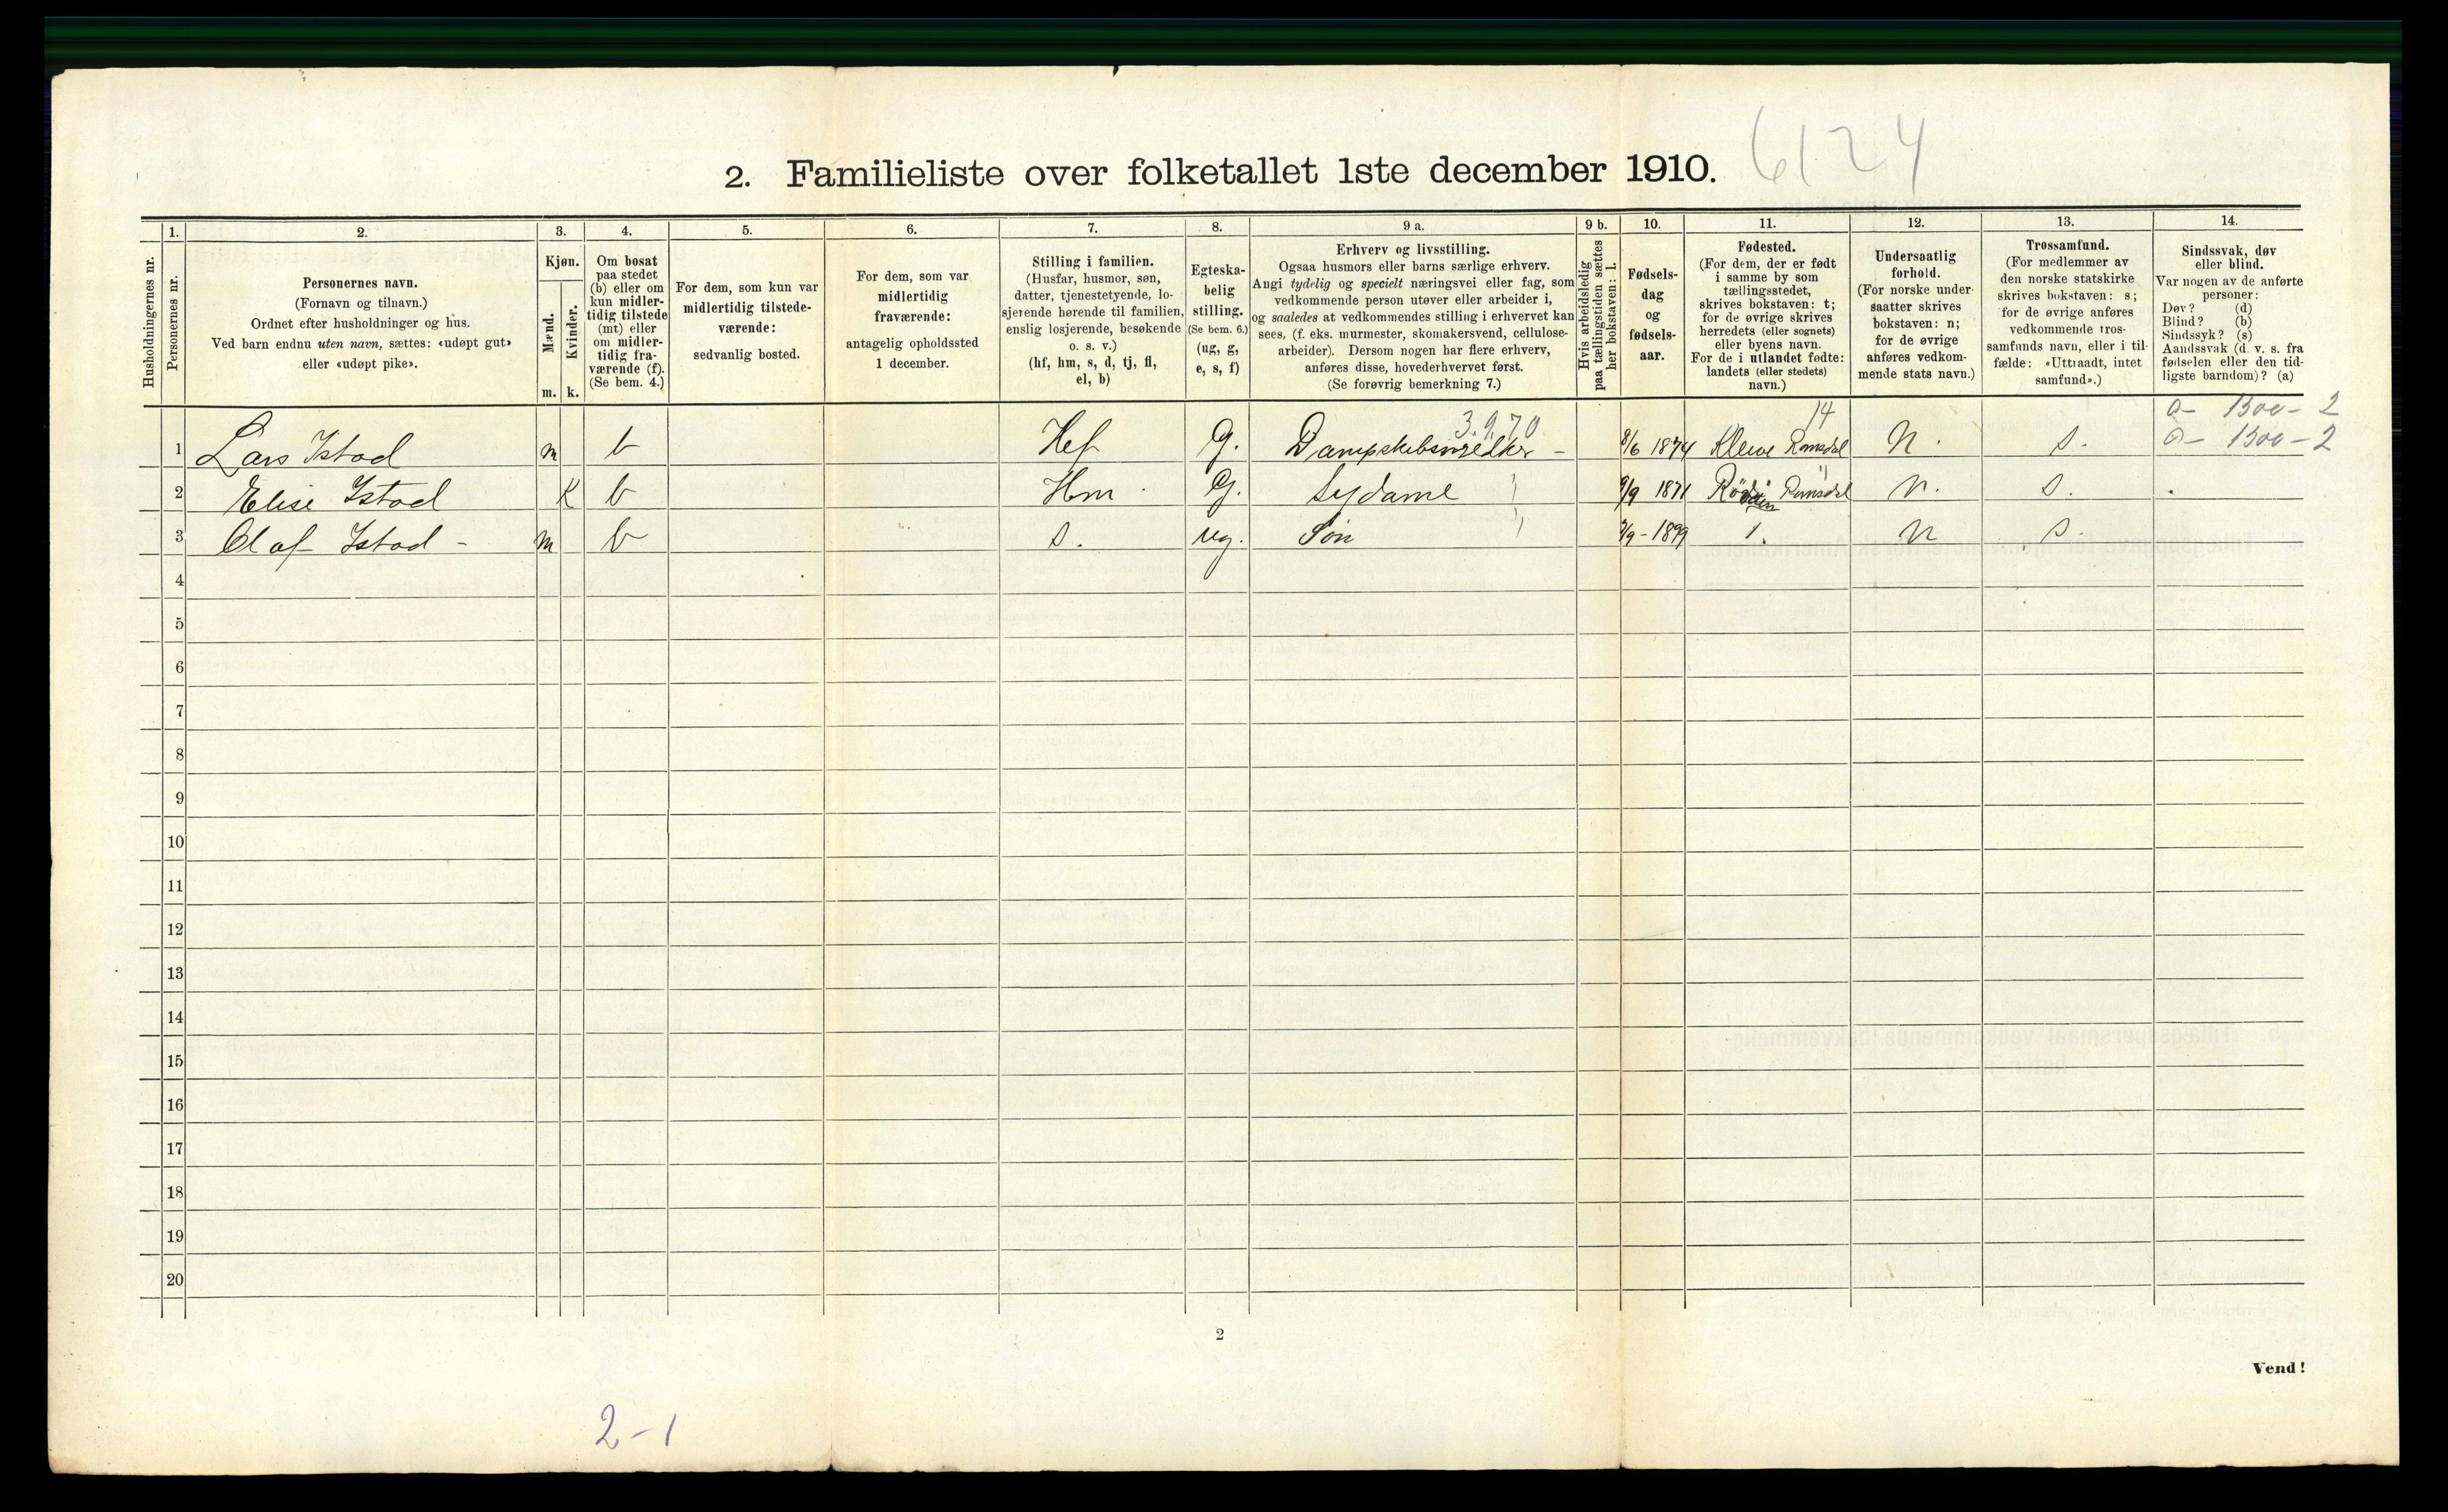 2. Familieliste over folketallet 1ste december 1910. 6124
1. 2. 3. 4. 5. 6. 7. 8. 9 a. 9 b. 10. 11. 12. 13. 14.
Husholdningernes nr.
Personernes nr.
Personernes navn.
(Fornavn og tilnavn.)
Ordnet efter husholdninger og hus.
Ved barn endnu uten navn, sættes: «udøpt gut»
eller «udøpt pike».
Kjøn.
Mænd.
Kvinder.
m. k.
Om bosat
paa stedet
(b) eller om
kun midler-
tidig tilstede
(mt) eller
om midler-
tidig fra-
værende (f).
(Se bem. 4.)
For dem, som kun var
midlertidig tilstede-
værende:
sedvanlig bosted.
For dem, som var
midlertidig
fraværende:
antagelig opholdssted
1 december.
Stilling i familien.
(Husfar, husmor, søn,
datter, tjenestetyende, lo-
sjerende hørende til familien,
enslig losjerende, besøkende
o. s. v.)
(hf, hm, s, d, tj, fl,
el, b)
Egteska-
belig
stilling.
(Se bem. 6.)
(ug, g,
e, s, f)
Erhverv og livsstilling.
Ogsaa husmors eller barns særlige erhverv.
Angi tydelig og specielt næringsvei eller fag, som
vedkommende person utøver eller arbeider i,
og saaledes at vedkommendes stilling i erhvervet kan
sees, (f. eks. murmester, skomakersvend, cellulose-
arbeider). Dersom nogen har flere erhverv,
anføres disse, hovederhvervet først.
(Se forøvrig bemerkning 7.)
Hvis arbeidsledig
paa tællingstiden sættes
her bokstaven: l.
Fødsels-
dag
og
fødsels-
aar.
Fødested.
(For dem, der er født
i samme by som
tællingsstedet,
skrives bokstaven: t;
for de øvrige skrives
herredets (eller sognets)
eller byens navn.
For de i utlandet fødte:
landets (eller stedets)
navn.)
Undersaatlig
forhold.
(For norske under-
saatter skrives
bokstaven: n;
for de øvrige
anføres vedkom-
mende stats navn.)
Trossamfund.
(For medlemmer av
den norske statskirke
skrives bokstaven: s;
for de øvrige anføres
vedkommende tros-
samfunds navn, eller i til-
fælde: «Uttraadt, intet
samfund».)
Sindssvak, døv
eller blind.
Var nogen av de anførte
personer:
Døv? (d)
Blind? (b)
Sindssyk? (s)
Aandssvak (d. v. s. fra
fødselen eller den tid-
ligste barndom)? (a)
3.9.70 14 a- 1300-2
1 Lars Istad m b Hef G. Dampskibsmedker - 8/6 1874 Kleive Romsdal N. S. a- 1300-2
2 Elise Istad K b Hm G. Sydame 9/9 1871 Röd Romsdal N. S.
3 Olaf Istad - m b S. ug. Søn 7/9-1899 1. N S.
4
5
6
7
8
9
10
11
12
13
14
15
16
17
18
19
20
2
Vend!
2-1